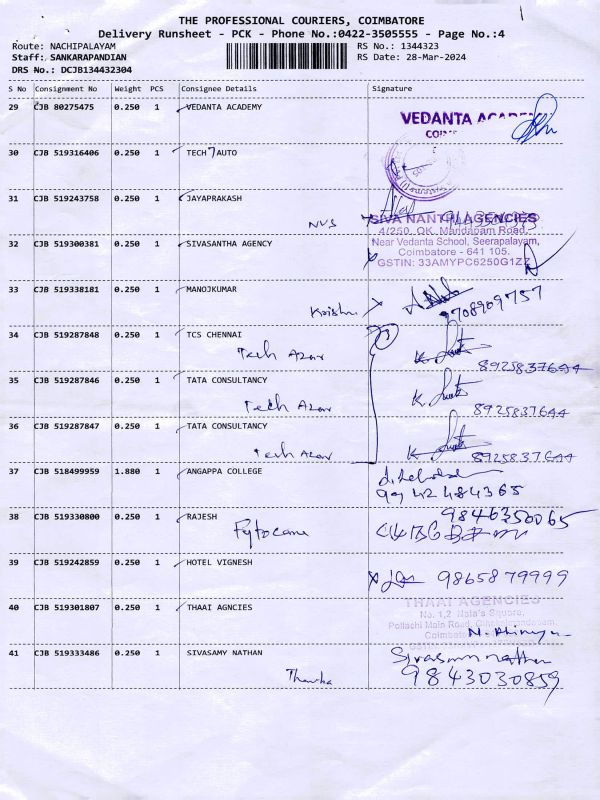 THE PROFESSIONAL COURIERS, COIMBATORE
Delivery Runsheet - PCK - Phone No.:0422-3505555 - Page No.:4
Route: NACHIPALAYAM RS No.: 1344323
Staff: SANKARAPANDIAN RS Date: 28-Mar-2024
DRS No.: DCJB134432304
S No Consignment No Weight PCS Consignee Details Signature
29 CJB 80275475 0.250 1 VEDANTA ACADEMY
VEDANTA
30 CJB 519316406 0.250 1 TECH 7 AUTO
31 CJB 519243758 0.250 1 JAYAPRAKASH
NVS
SIVA NANTHI AGENCIES
4/250, OK. Mandapam Road,
32 CJB 519300381 0.250 1 SIVASANTHA AGENCY Near Vedanta School, Seerapalayam,
Coimbatore - 641 105.
GSTIN: 33AMYPC6250G1ZZ
33 CJB 519338181 0.250 1 MANOJKUMAR
9708909757
34 CJB 519287848 0.250 1 TCS CHENNAI
Tech Azar 8925837644
35 CJB 519287846 0.250 1 TATA CONSULTANCY
Tech Azar 8925837644
36 CJB 519287847 0.250 1 TATA CONSULTANCY
Tech Azar 8925837644
37 CJB 518499959 1.880 1 ANGAPPA COLLEGE
9942484365
38 CJB 519330800 0.250 1 RAJESH 9846350065
39 CJB 519242859 0.250 1 HOTEL VIGNESH
9865879999
40 CJB 519301807 0.250 1 THAAI AGNCIES THAAI AGENCIES
Pollachi Main Road,
41 CJB 519333486 0.250 1 SIVASAMY NATHAN
9843030859